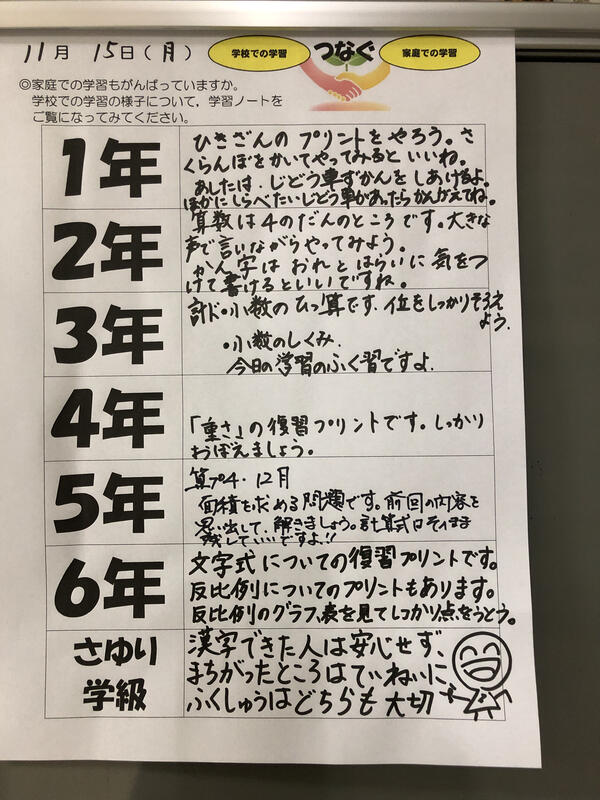 11月 15日(月)
学校での学習 つなぐ 家庭での学習
◎家庭での学習もがんばっていますか。
学校での学習の様子について,学習ノートを
ご覧になってみてください。
1年
ひきざんの プリントをやろう。さ
くらんぼをかいてやってみると いいね。
あしたは、じどう車ずかんをしあげるよ。
ほかにしらべたいじどう車があったらかんがえてね。
2年
算数は4のだんのところです。大きな
声で言いながらやってみよう。
かん字は おれと はらいに 気をつ
けて書けるといいですね。
3年
計ド・小数のひっ算です、位をしっかりそろえ
よう.
・小数のしくみ.
今日の学習のふく習ですよ.
4年
「重さ」の復習プリントです。しっかり
おぼえましょう。
5年
算プ4・12月
面積を求める問題です。前回の内容を
思い出して、解きましょう。計算式はそのまま
残していいですよ!!
6年
文字式についての復習プリントです。
反比例についてのプリントもあります。
反比例のグラフ、表を見てしっかり点をうとう。
さゆり
学級
漢字できた人は安心せず、
まちがったところはていねいに、
ふくしゅうはどちらも大切